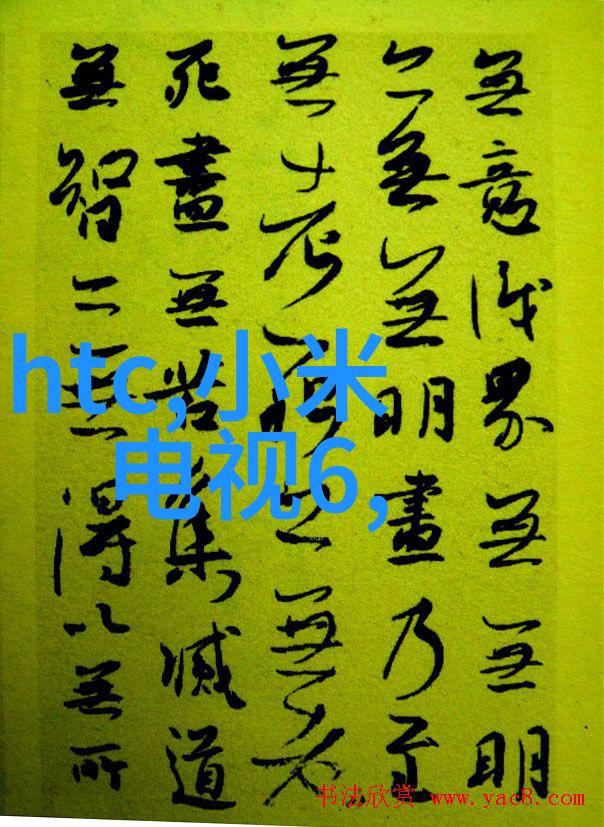 無意識界無無明
亦無無明盡乃至
無老死亦無老
死盡無苦集滅道
無智亦無得以無所
htc,小米
电视6,
书法欣赏 www.yac8.com